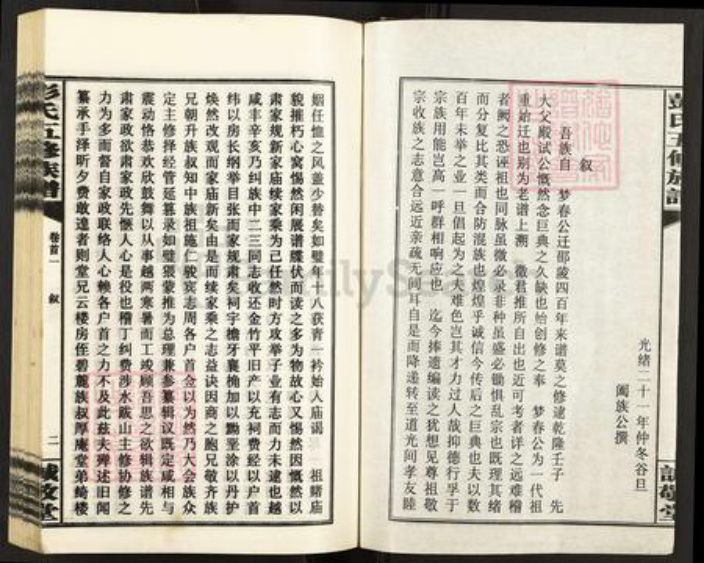 彭氏五修族谱
诚敬堂
光绪二十一年仲冬谷旦
阖族公撰
叙
吾族自 梦春公迁邵陵四百年来谱莫之修逮乾隆壬子 先
大父殿试公慨然念巨典之久缺也始创修之奉 梦春公为一代祖
重始迁也别为老谱上溯 徵君推所自出也近可考者详之远难稽
者阙之恐诬祖也同脉虽微必录非种虽盛必锄惧乱宗也既理其绪
而分复比其类而合防混族也煌煌乎诚信今传后之巨典也夫以数
百年未举之业一旦倡起为之夫难色岂其才力过人哉抑德行孚于
宗族用能岂高一呼群相响应也 迄今捧遗编读之犹想见尊祖敬
宗收族之志意合远近亲疏无间耳自是而降递转至道光间孝友睦
姻任恤之风盖少替矣如璧年十八获青一衿始入庙谒 祖睹庙
貌摧朽心窝惕然闲展谱牒伏而读之多为物故心又惕然因慨然以
肃家规新家庙续家乘为己任然时方攻举子业有志而力未逮也越
咸丰辛亥乃纠族中二三同志收还金竹平旧产以充祠费经以户首
纬以房长纲举目张而家规肃矣祠宇檐牙襄桷加以黝垩涂以丹护
焕然改观而家庙新矣由是而续家乘之志益诀因商之胞兄敬齐族
兄朝升族叔知中族祖施仁骏宾志周各户首佥以为然乃大会族众
定主修择经管延纂录如璧猥蒙推为总理兼参纂辑议既定咸相与
震动恪恭欢欣鼓舞以从事越两寒暑而工竣顾吾思之欲辑族谱先
肃家政欲肃家政先惬人心是役也稽丁纠费涉水跋山主修协修之
力为多而督自家政联络人心赖各户首之力不及此兹夫殚述旧闻
纂承手泽昕夕费敢遑者则堂兄云楼房侄碧麓族叔厚庵堂弟绮楼
彭氏五修族谱
卷首一
叙
二
诚敬堂